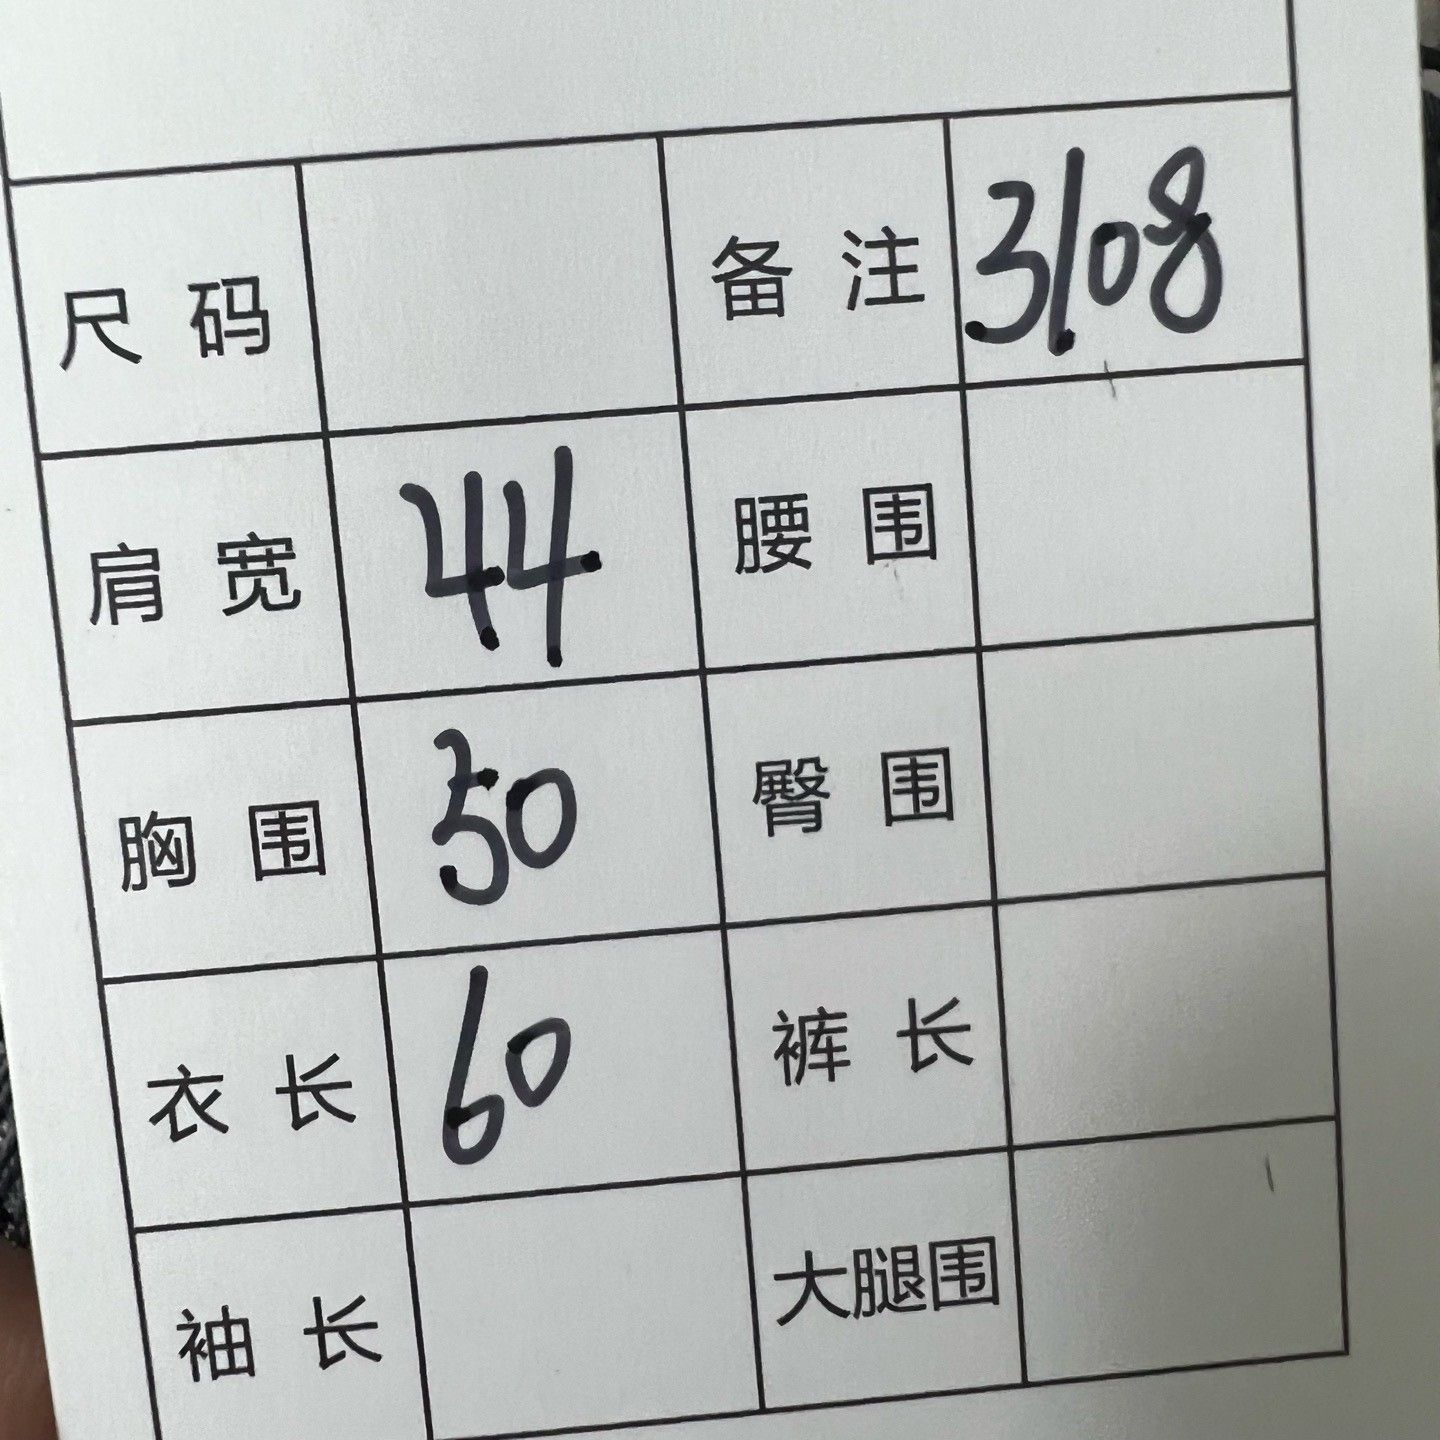 尺码 备注 3108
肩宽 44 腰围
胸围 50 臀围
衣长 60 裤长
袖长 大腿围